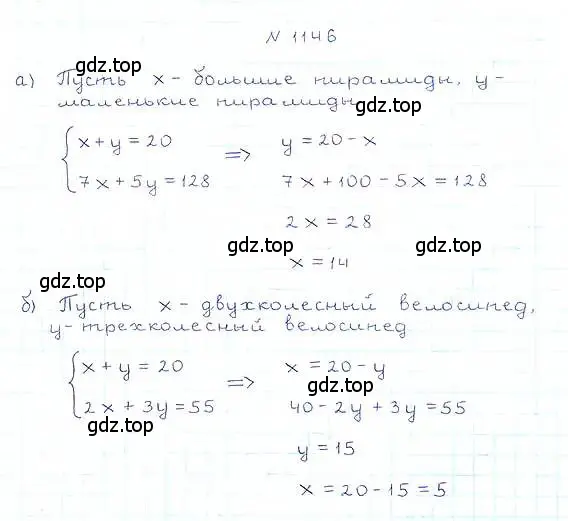 N 1146
а) Пусть x - большие пирамиды, y -
маленькие пирамиды
gdz.top
gdz.top
x + y = 20 => y = 20 - x
7x + 5y = 128 7x + 100 - 5x = 128
gdz.top
2x = 28
gdz.top gdz.top
x = 14
gdz.top
б) Пусть x - двухколесный велосипед,
y - трехколесный велосипед
gdz.top
x + y = 20 => x = 20 - y
gdz.top
2x + 3y = 55 40 - 2y + 3y = 55
gdz.top
y = 15
x = 20 - 15 = 5